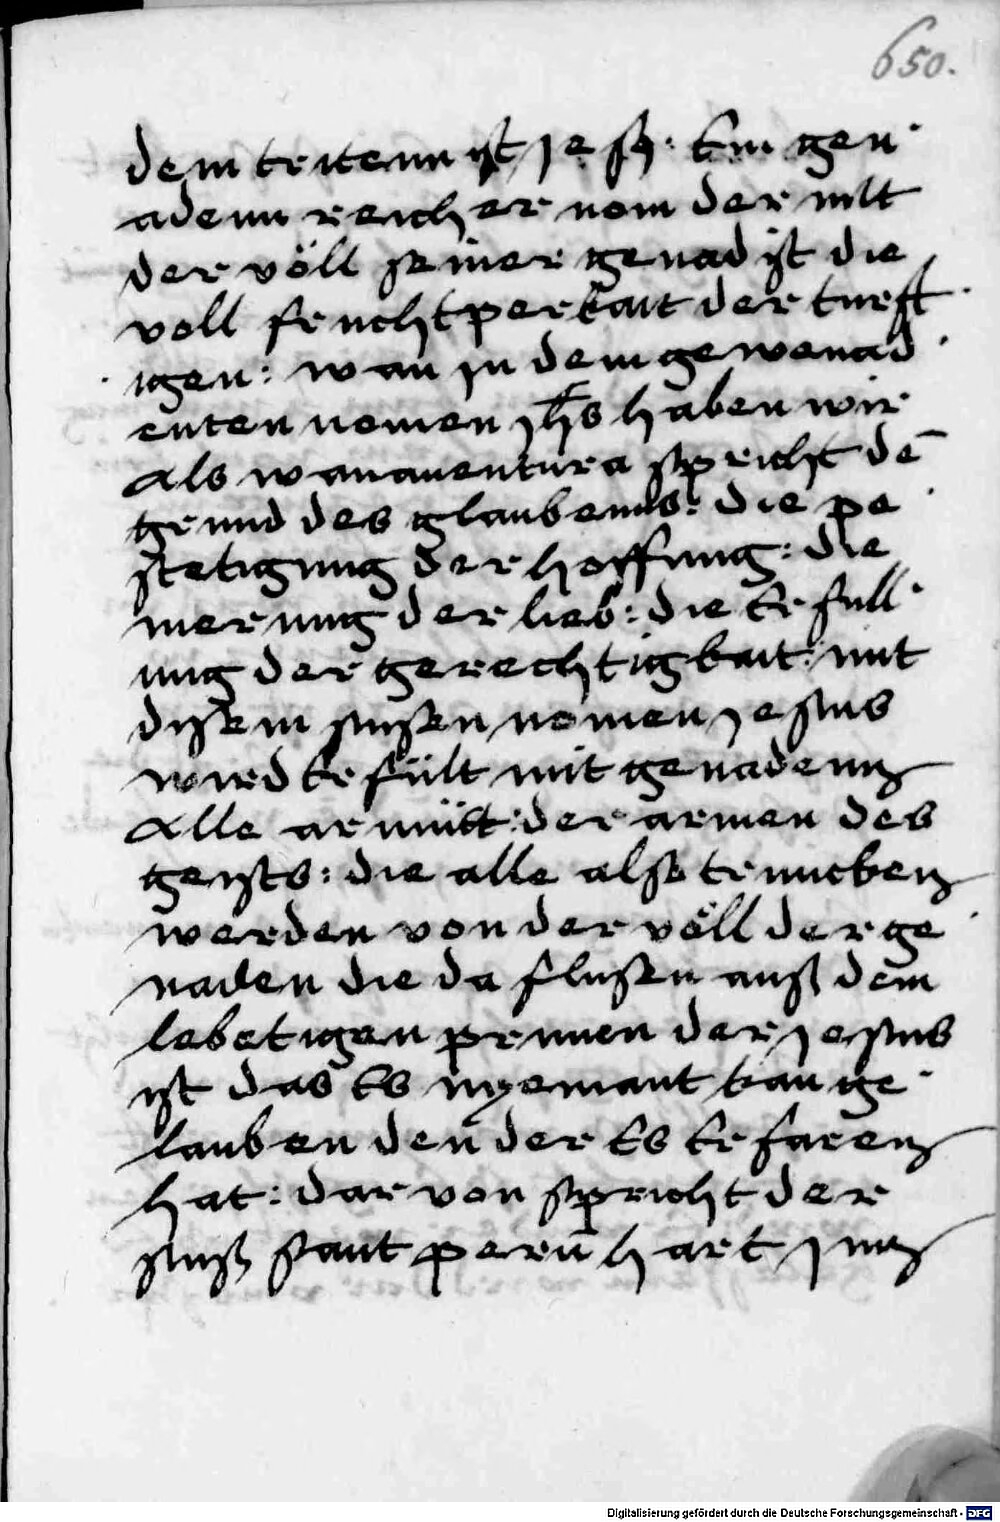 650.
dem tritenn ist jesꝫ : Ein gen
adenn reicher nom der mit
der völl seiner genad ist die
voll fruchtperkait der turfft
igen : wan jn dem gewenad
eyten nomen jhs haben wir
als wanaventura spricht dē
grund des glaubenns : die pe
stetigung der hoffnung : die
merung der lieb : die Erfull
ung der gerechtigkait : mit
disem suissen nomen jesuus
wird Erfült mit genadenn
Alle armütt : der armen des
geists : die alle also trincken
werden von der völl der ge
naden die da flussen auss dem
lebetigen prunen der jesuus
ist das Es nyemant kan ge
lauben den der Es Erfaren
hat : dar von spricht der
suiss sant pernhart jnn
Digitalisierung gefördert durch die Deutsche Forschungsgemeinschaft - DFG